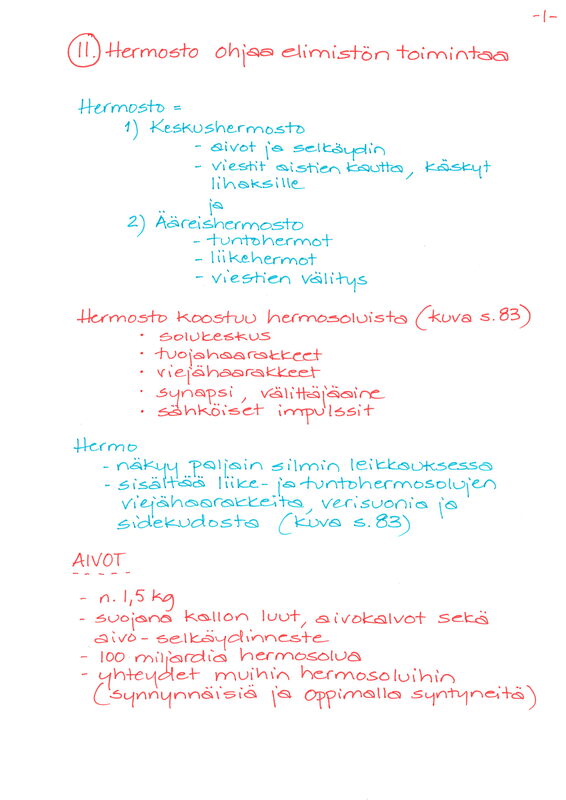 -1-
11. Hermosto ohjaa elimistön toimintaa
Hermosto =
1) Keskushermosto
- aivot ja selkäydin
- viestit aistien kautta, käskyt
lihaksille
ja
2) Ääreishermosto
- tuntohermot
- liikehermot
- viestien välitys
Hermosto koostuu hermosoluista (kuva s.83)
• solukeskus
• tuojahaarakkeet
• viejähaarakkeet
• synapsi, välittäjäaine
• sähköiset impulssit
Hermo
- näkyy paljain silmin leikkauksessa
- sisältää liike- ja tuntohermosolujen
viejähaarakkeita, verisuonia ja
sidekudosta (kuva s.83)
AIVOT
- n. 1,5 kg
- suojana kallon luut, aivokalvot sekä
aivo-selkäydinneste
- 100 miljardia hermosolua
- yhteydet muihin hermosoluihin
(synnynnäisiä ja oppimalla syntyneitä)